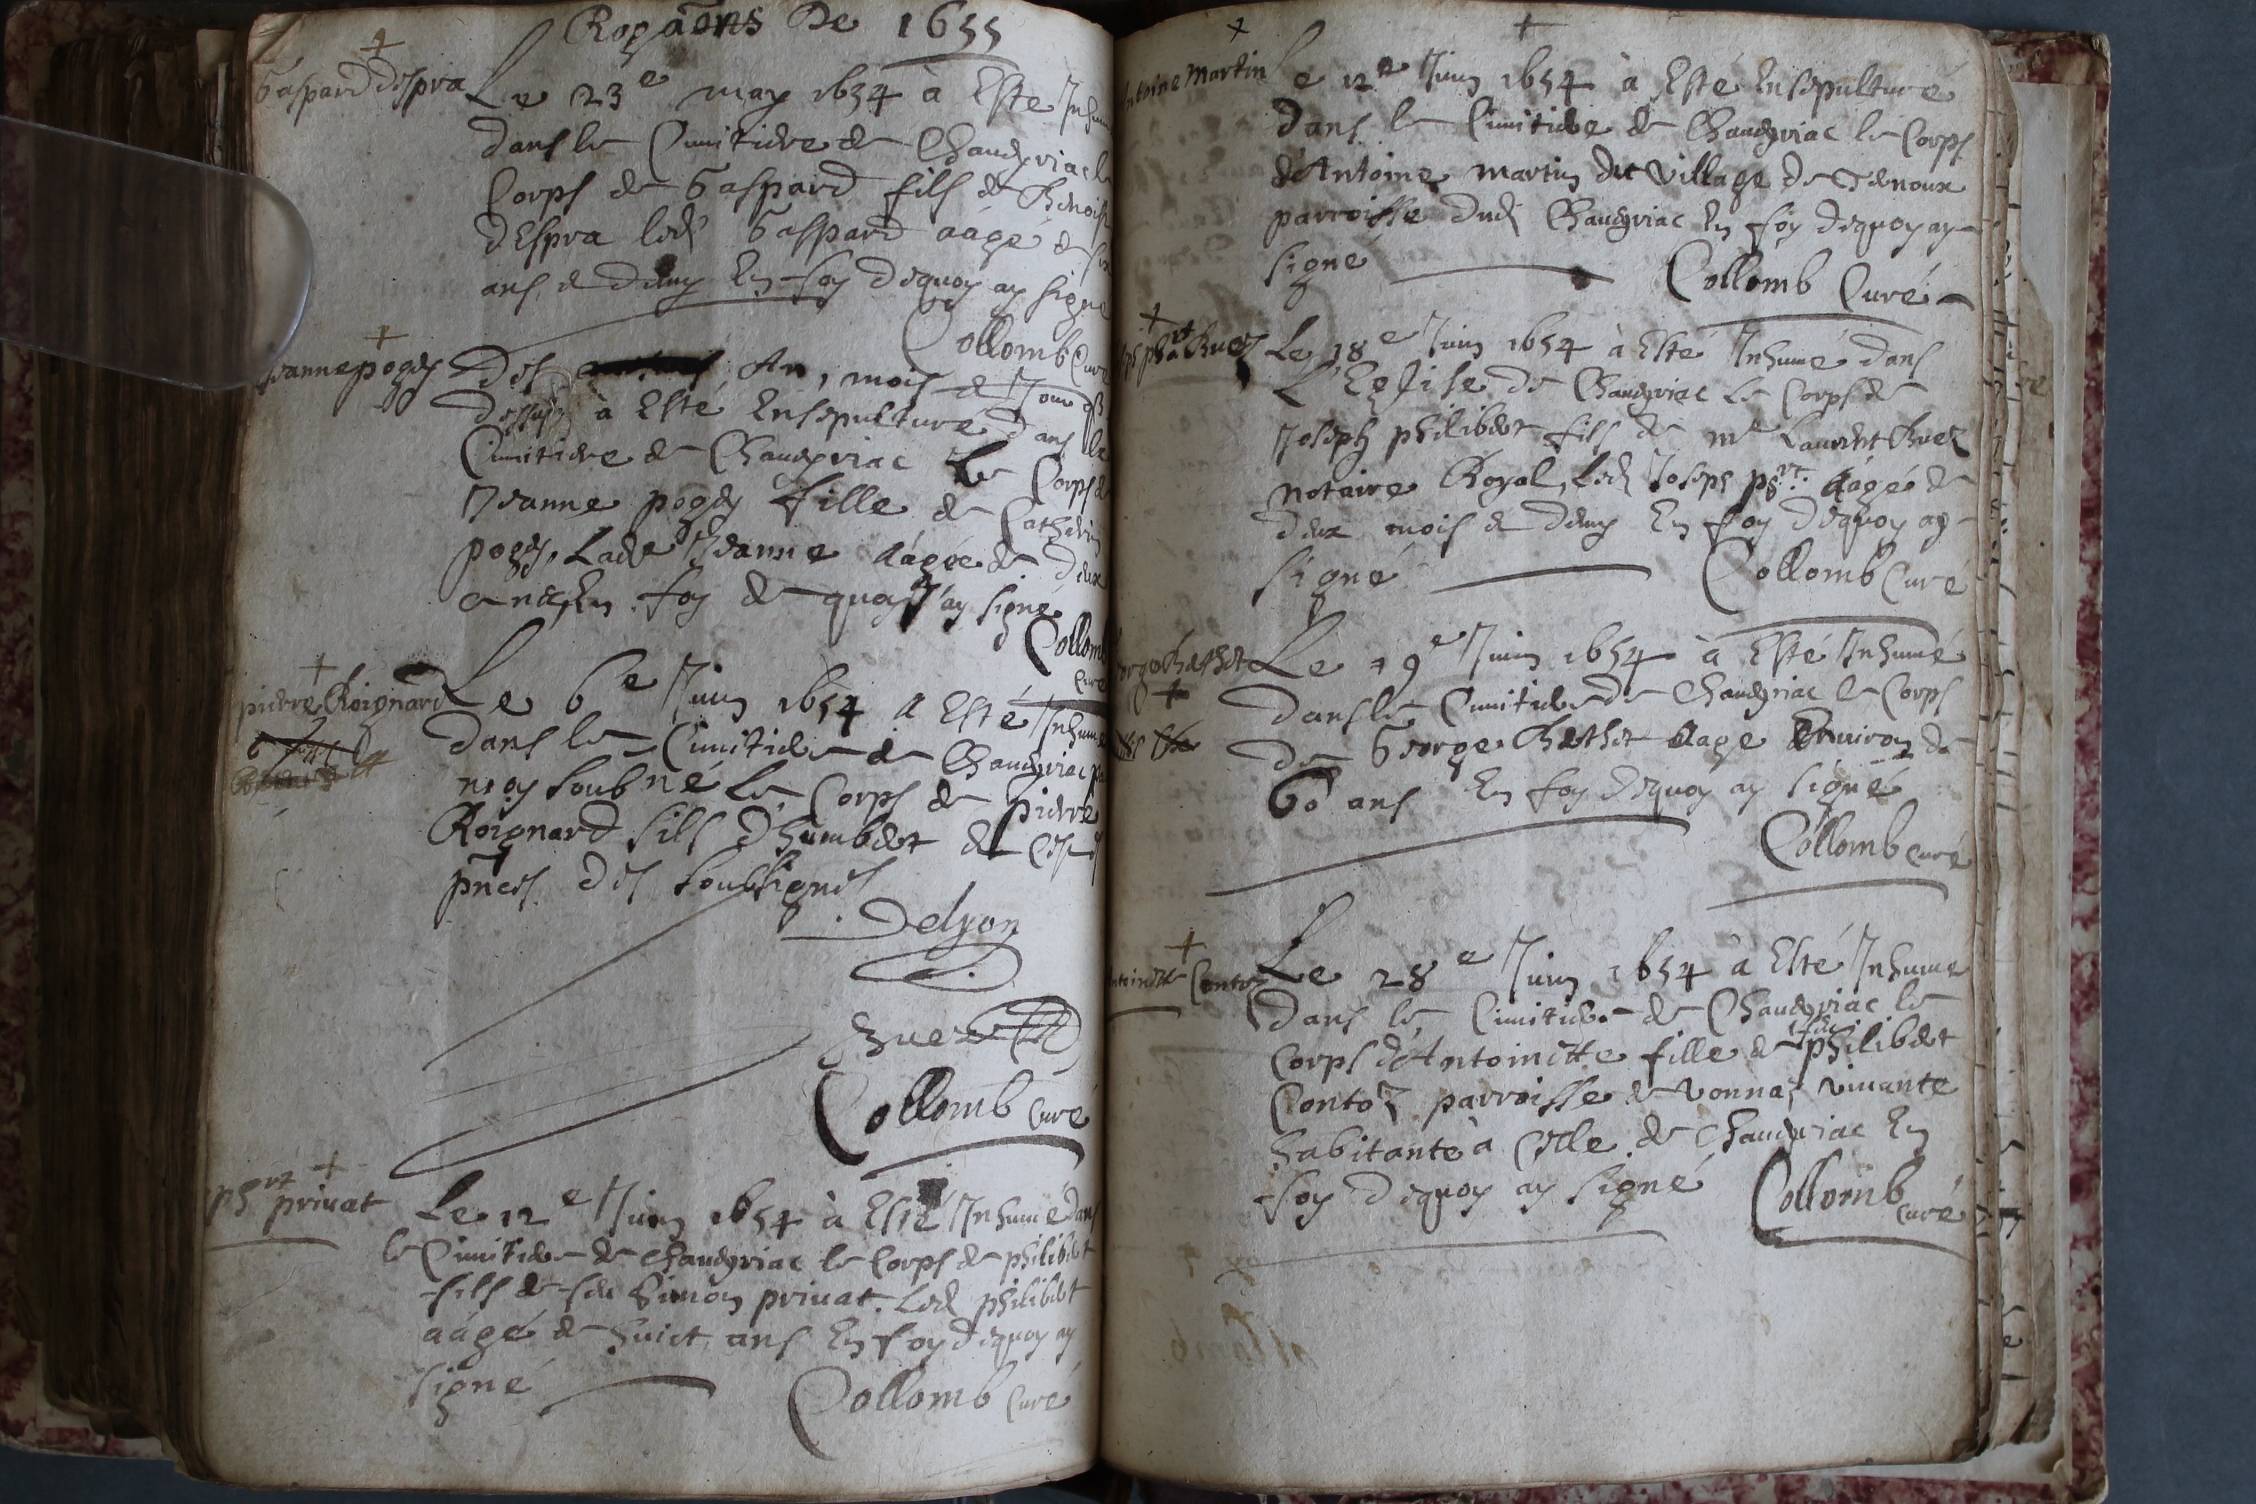 Rogãons De 1655
Gaspard despra
Le 23e may 1654 à Esté Inhumé
dans le Cimitiere de Chaveyriac le
Corps de Gaspard fils de Benoist
dEspra led. Gaspard aâgé de six
ans, & demy En foy dequoy ay signé
Collomb Curé
Jeanne pogey
Des An, mois & Jour
dessus à Esté Ensepulturé dans le
Cimitiere de Chaveyriac Le Corps de
Jeanne pogey fille de Catherin
pogey, Lade Jeanne aâgée de deux
ans En foy de quoy J'ay signé
Collomb
Curé
pierre Roignard
Le 6e Juin 1654 a Esté Inhumé
dans le Cimitiere de Chaveyriac par
moy soubné Le Corps de pierre
Roignard fils d'humbert de
pnces des soubsignes
Delyon
Buez
Collomb Curé
phrt privat
Le 12e Juin 1654 à Esté Inhumé dans
le Cimitiere de chaveyriac le Corps de philibert
fils de feu Simon privat. Led philibert
aâgé de huict ans En foy dequoy ay
signé Collomb Curé
Antoine Martin
Le 12e Juin 1654 à Esté Ensepulturé
dans le Cimitiere de Chaveyriac le Corps
d'Antoine martin du village de
parroisse dud. Chaveyriac En foy dequoy ay
signé Collomb Curé
Jph phrt Buez
Le 18e Juin 1654 à Esté Inhumé dans
L'Eglise de Chaveyriac Le Corps de
Joseph philibert fils de me Laurent Buez
notaire Royal, Led. Joseph phrt. aâgé de
deux mois & demy En foy dequoy ay
signé Collomb Curé
George
Le 19e Juin 1654 à Esté Inhumé
dans le Cimitiere de Chaveyriac le Corps
de George aagé Environ de
60 ans En foy dequoy ay signé
Collomb curé
Antoinette Contoz
Le 28e Juin 1654 à Esté Inhumé
dans le Cimitiere de Chaveyriac le
feu
Corps d'Antoinette fille de philibert
Contoz parroisse de vonnaz vivante
habitante à Celle de chaveyriac En
foy dequoy ay signé Collomb
curé